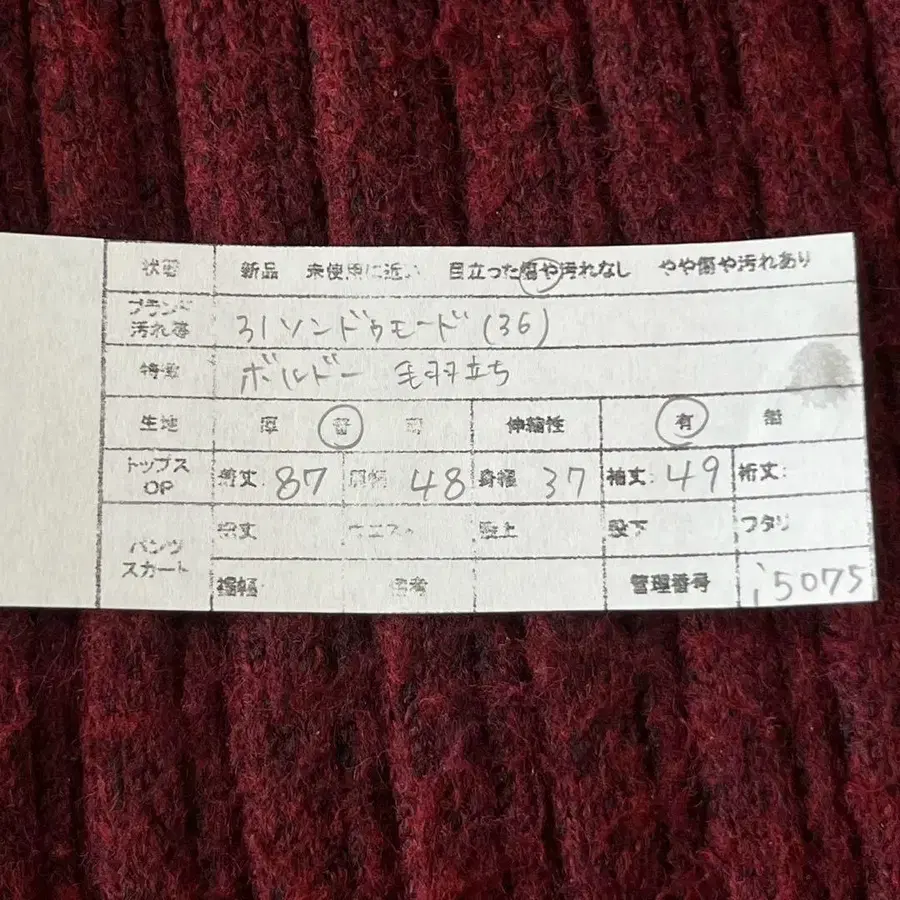 状態 新品 未使用に近い 目立った傷や汚れなし やや傷や汚れあり
ブランド 31ソンドゥモード(36)
汚れ等
特徴 ボルドー 毛羽立ち
生地 厚 普 伸縮性 有 無
トップス OP 着丈: 87 肩幅 48 身幅 37 袖丈: 49 裄丈:
パンツ スカート 総丈 ウエスト 股上 股下 ワタリ
裾幅 備考 管理番号 i5075